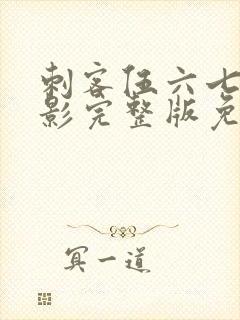 刺客伍六七
影完整版免
冥一道